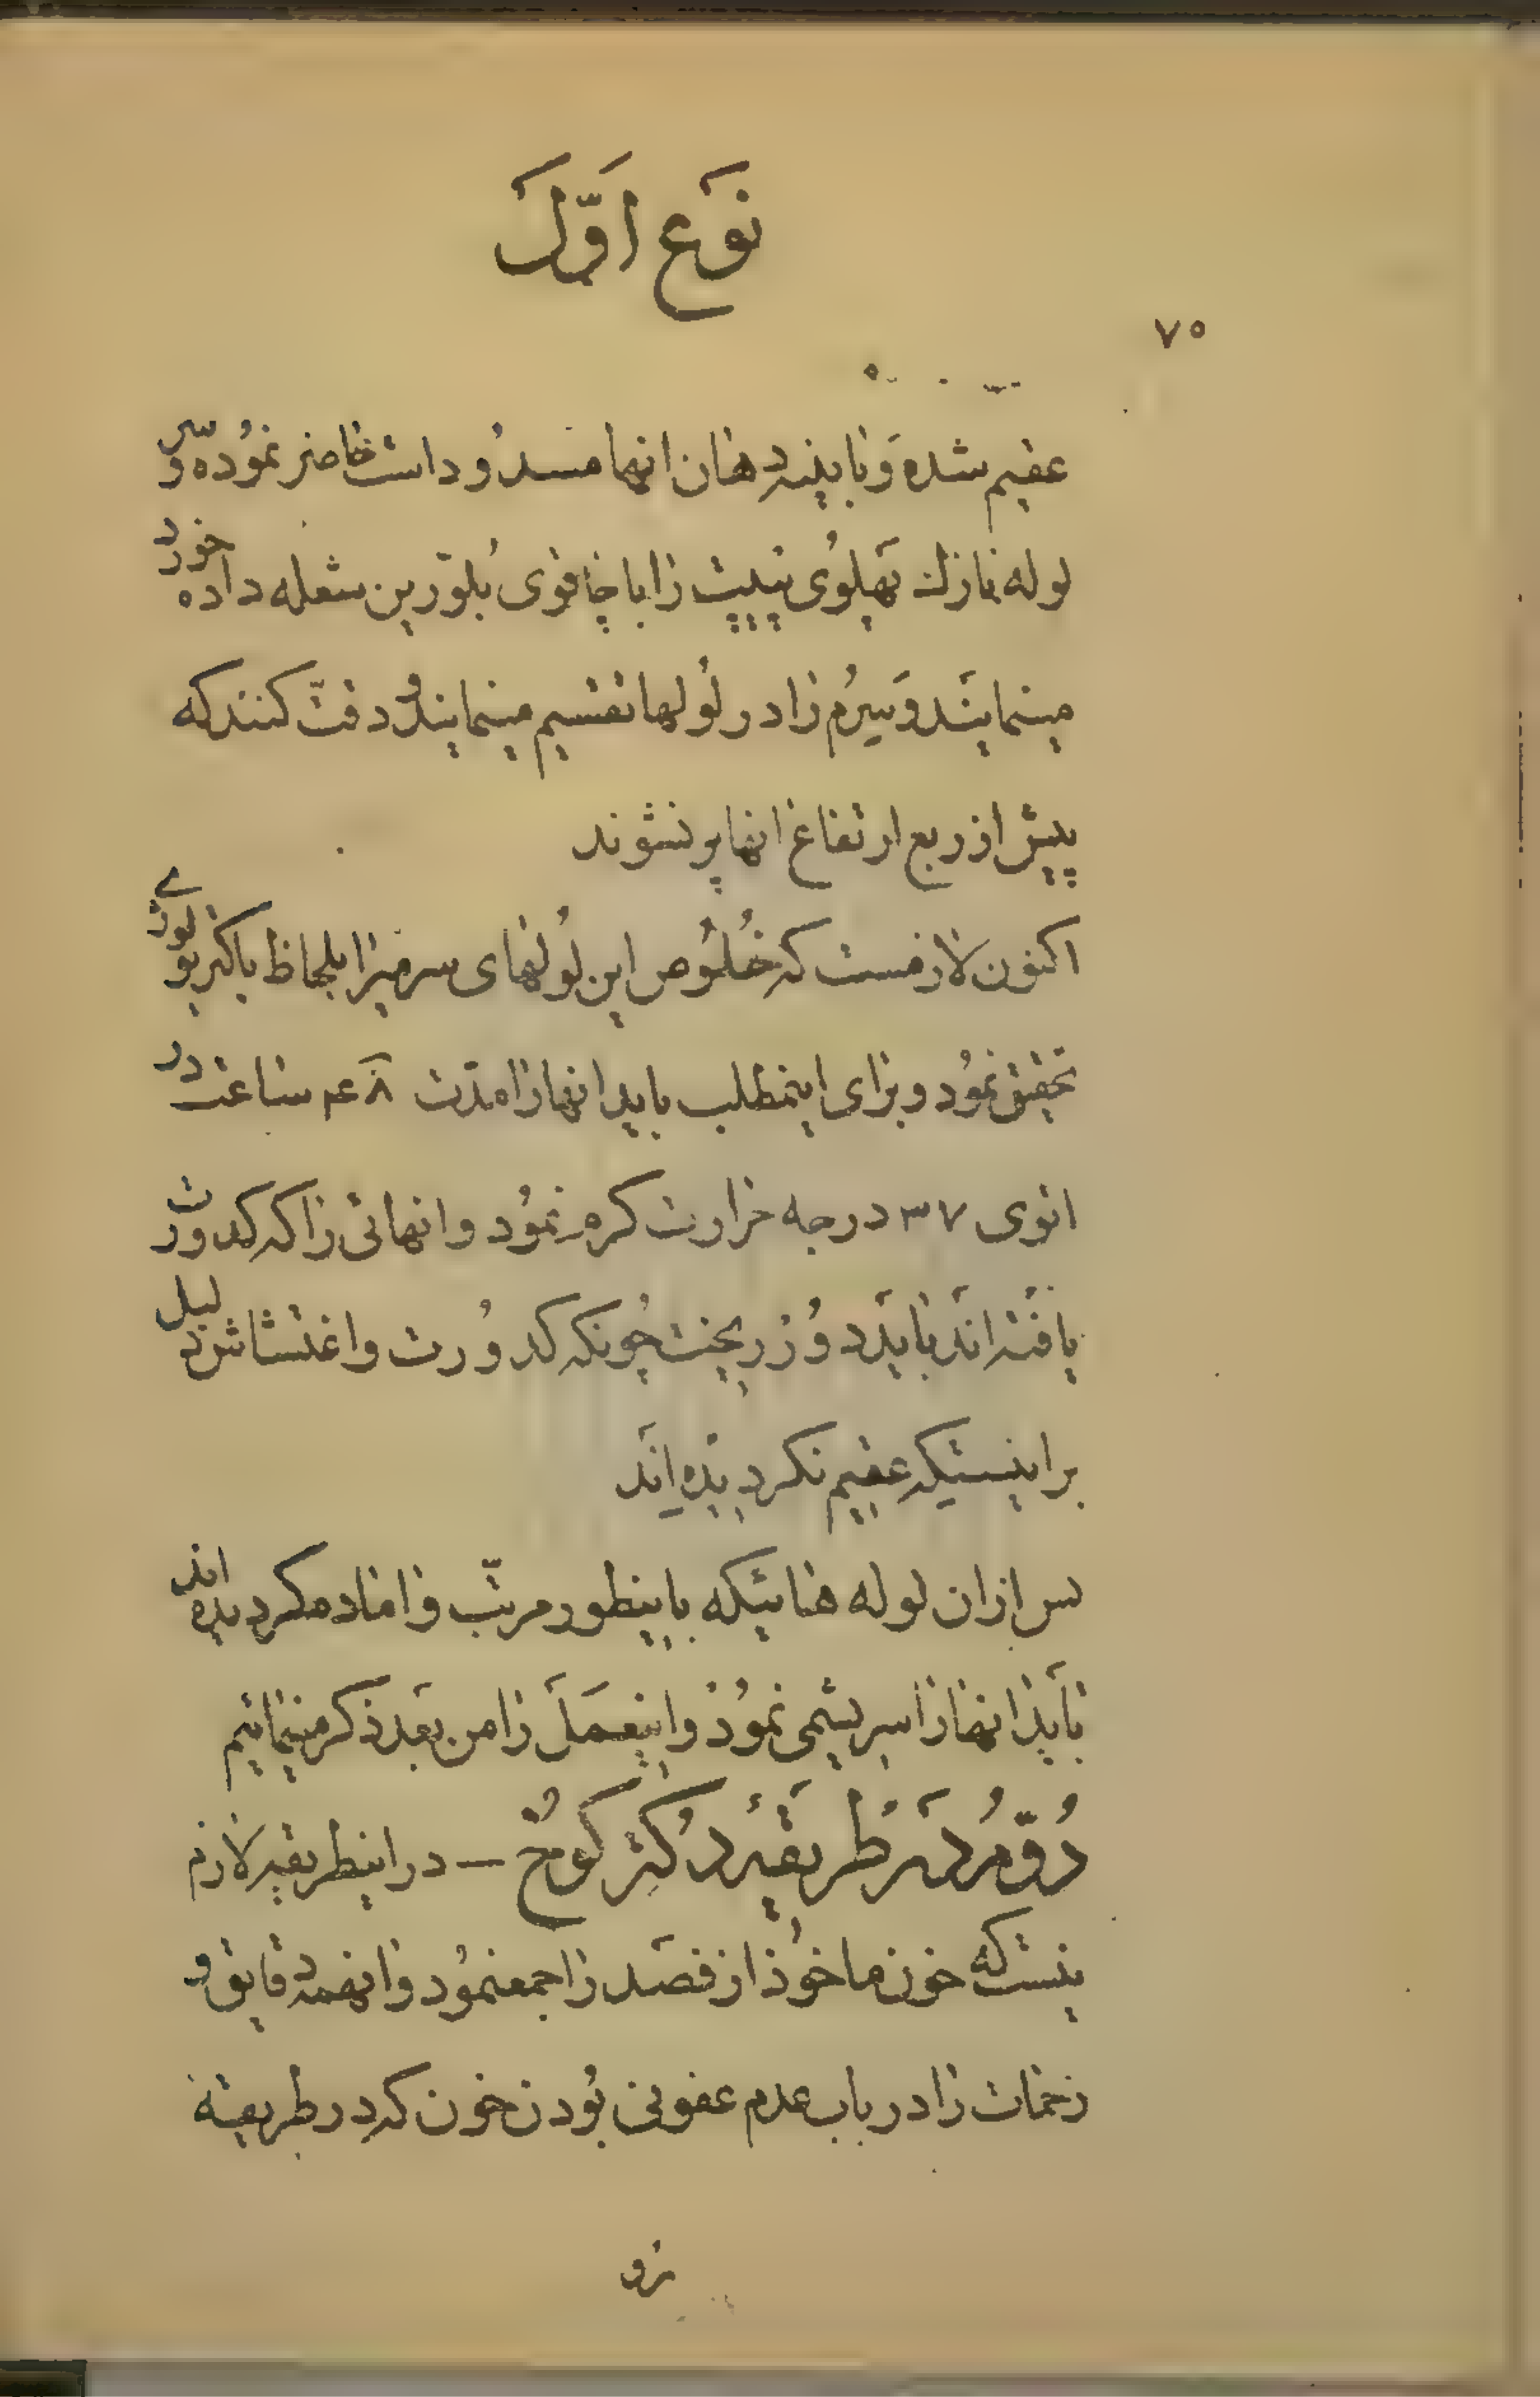 نوع اول
۷۵
عقیم شده و با پنبه دهان انها مسدود است حاضر نموده و سر
لوله نازک پهلوی پیپت را با چاقوی بلورین شعله داده خورد
مینمایند و سیرم را در لولها تقسیم مینمایند و دقت کنند که
پیش از ربع ارتفاع انها پر نشوند
اکنون لازمست که خلوص این لولهای سرمیرا بلحاظ باکتریولوژی
تحقیق نمود و برای اینمطلب باید انها را مدت ۴۸ ساعت در
اتوی ۳۷ درجه حرارت گرم نمود و انهائی را که کدورت
یافته اند باید دور ریخت چونکه کدورت و اغتشاش دلیل
بر اینستیکه عقیم نکردیده اند
پس از ان لوله هائیکه باینطور مرتب و اماده گردیده اند
باید انها را سر بشمی نمود و اینعمل را من بعد ذکر مینمائیم
دوم در طریقهٔ دکتر کوخ — در اینطریقه لازم
نیست که خون ماخوذ از فصد را جمعنمود و انهمه دقایق و
زحمات را در باب عدم عفونی بودن خون که در طریقهٔ
رو